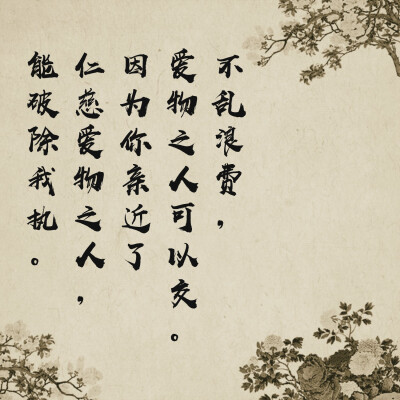 不乱浪费，
爱物之人可以交。
因为你亲近了
仁慈爱物之人，
能破除我执。